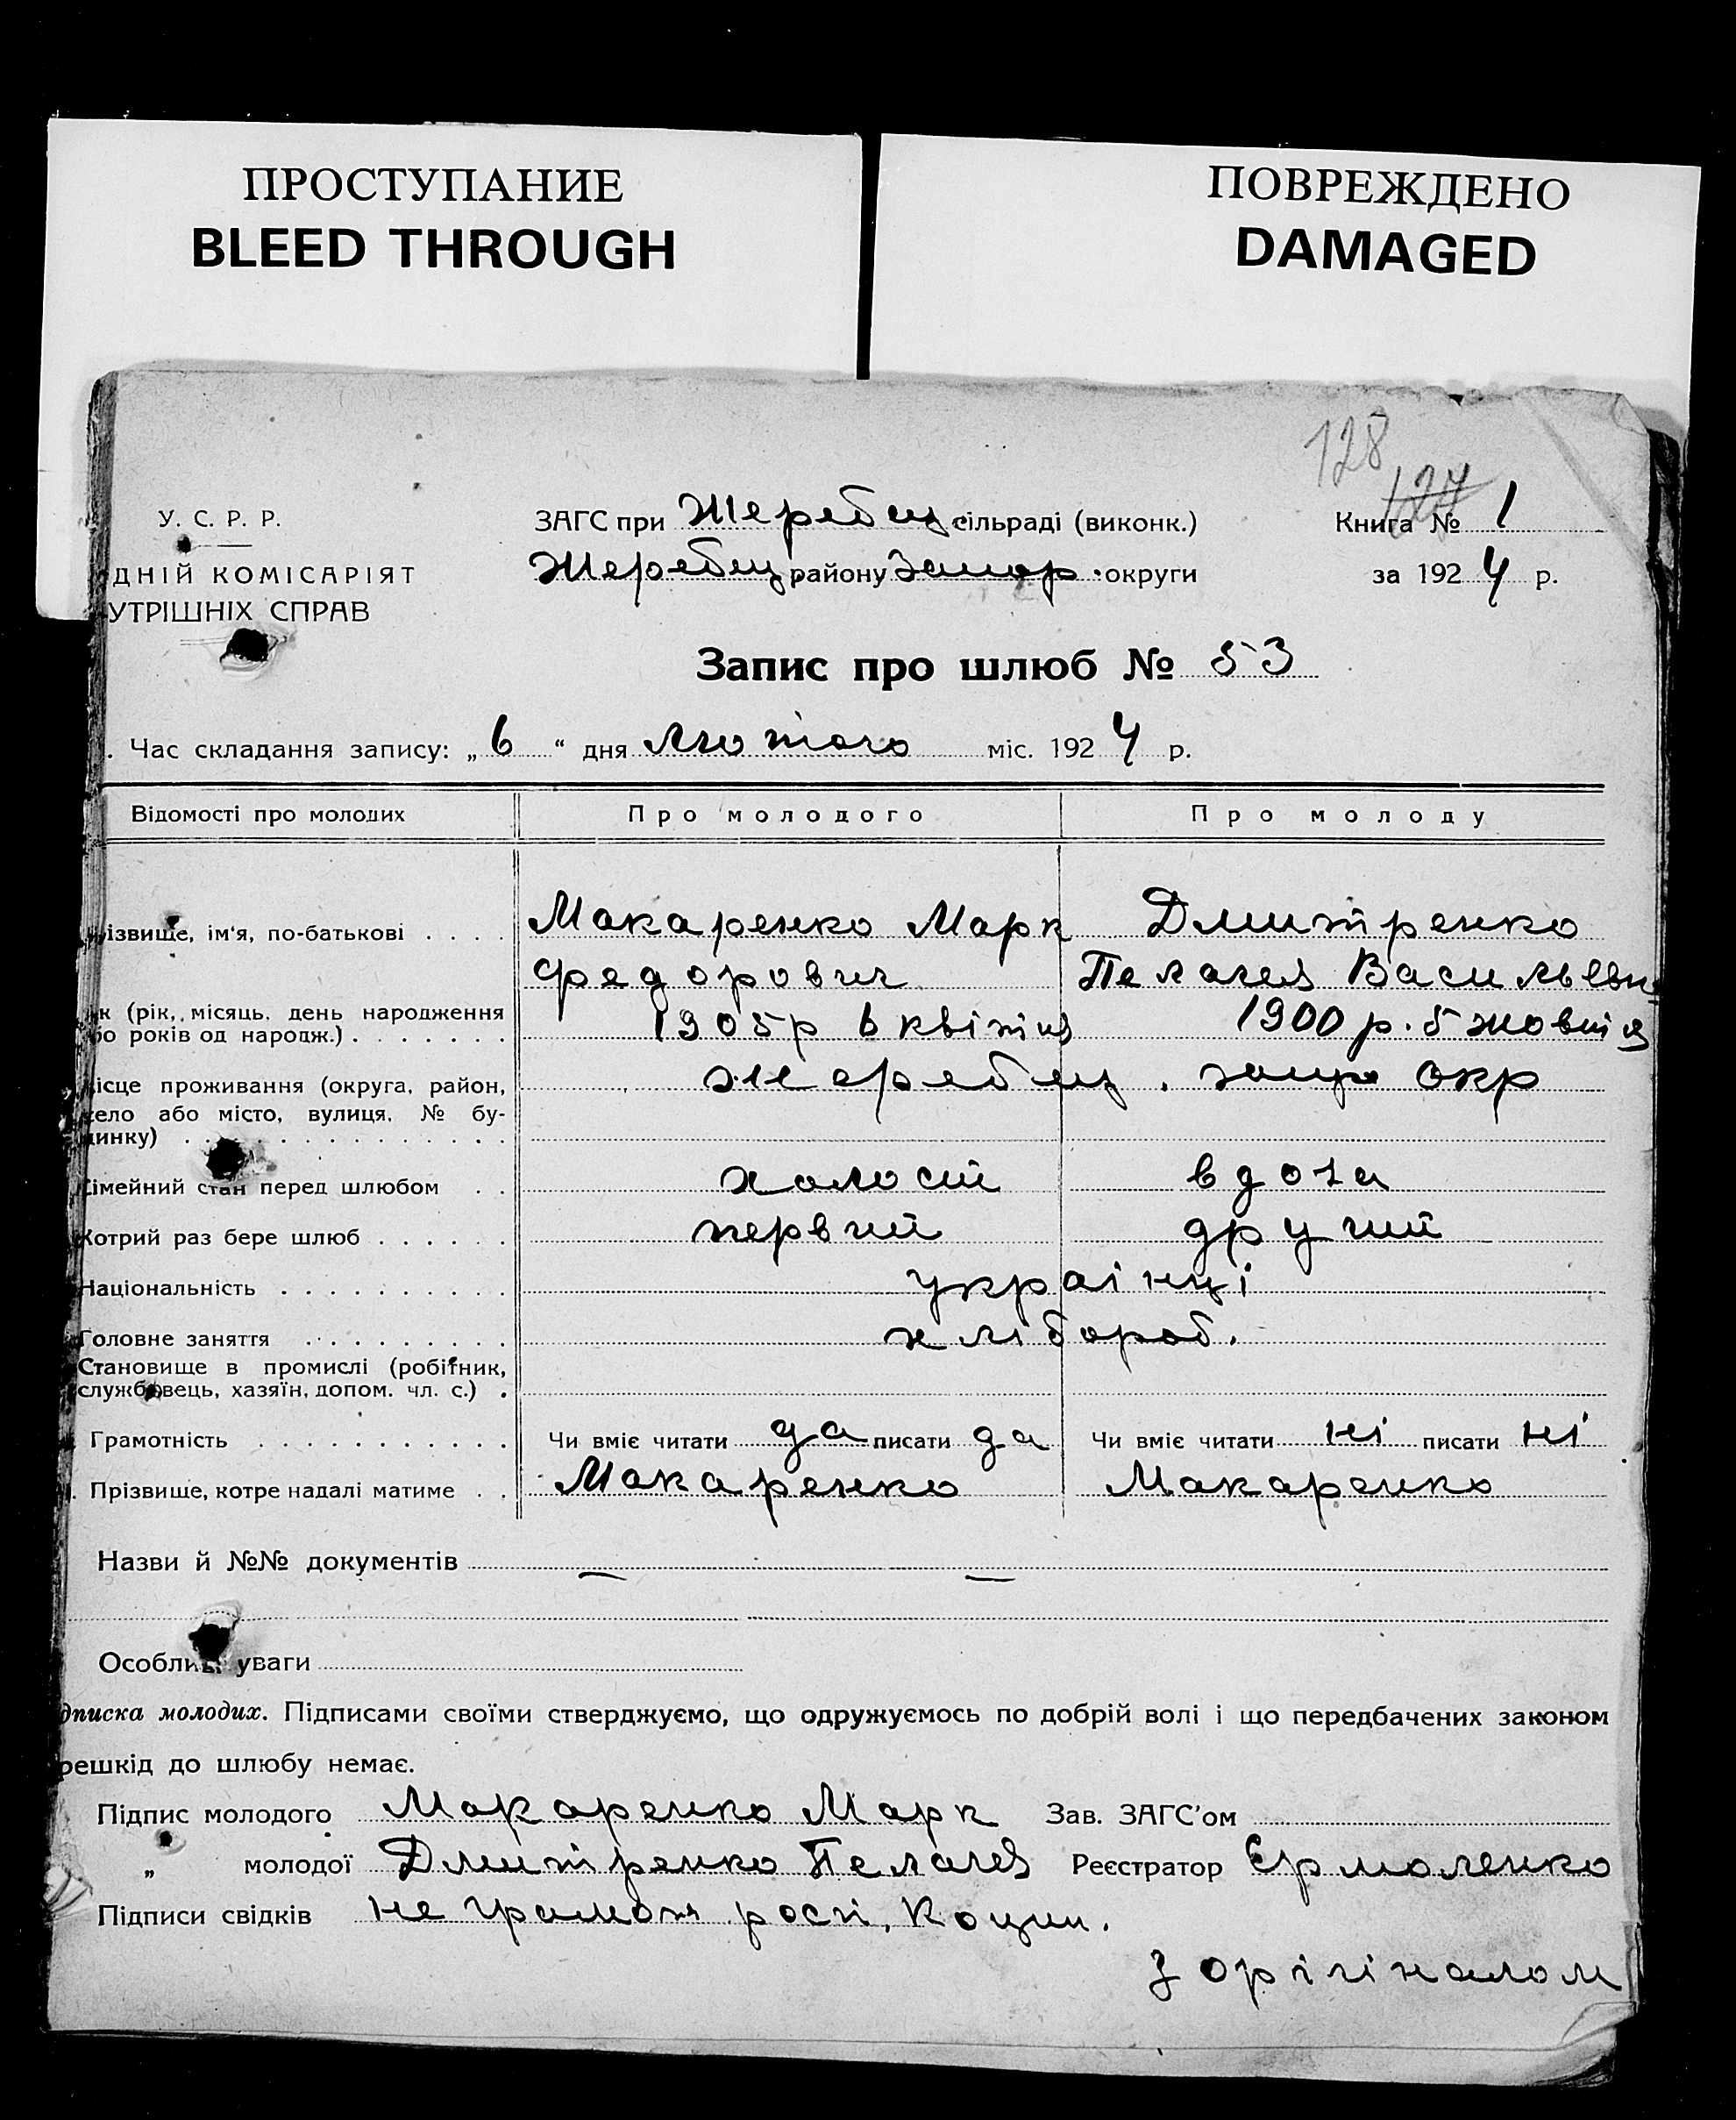 ПРОСТУПАНИЕ
BLEED THROUGH
ПОВРЕЖДЕНО
DAMAGED
128
127
У. С. Р. Р.
ДНІЙ КОМІСАРІЯТ
УТРІШНІХ СПРАВ
ЗАГС при Жеребец сільраді (виконк.)
Жеребец району Запор. округи
Книга № 1
за 1924 р.
Запис про шлюб № 53
. Час складання запису: „6“ дня лютого міс. 1924 р.
Відомості про молодих Про молодого Про молоду
різвище, ім‘я, по-батькові . . . . Макаренко Марк Дмитренко
федорович Пелагея Васильевн
к (рік, місяць, день народження
бо років од народж.) . . . . . . . 1905р 6 квітня 1900 р. 5 жовтня
ісце проживання (округа, район, жеребец. запр окр
село або місто, вулиця, № бу-
динку) . . . . . . . . . . . . . .
Сімейний стан перед шлюбом . . холостий вдова
Котрий раз бере шлюб . . . . . . первий другий
Національність . . . . . . . . . . українці
Головне заняття . . . . . . . . . хлібороб.
Становище в промислі (робітник,
службовець, хазяїн, допом. чл. с.) .
Грамотність . . . . . . . . . . . Чи вміє читати да писати да Чи вміє читати ні писати ні
. Прізвище, котре надалі матиме . . Макаренко Макаренко
Назви й №№ документів — —
Особливі уваги
дписка молодих. Підписами своїми стверджуємо, що одружуємось по добрій волі і що передбачених законом
решкід до шлюбу немає.
Підпис молодого Макаренко Марк Зав. ЗАГС’ом
„ молодої Дмитренко Пелагея Реєстратор Єрмоленко
Підписи свідків не грамотн росп.
з орігіналом